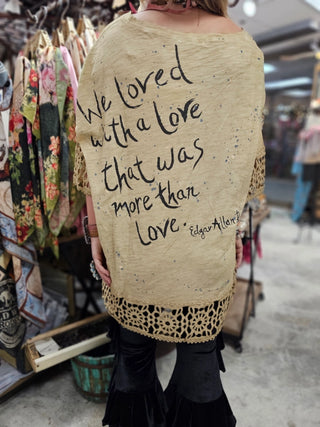 We loved
with a Love
that was
more than
Love.
Edgar Allan